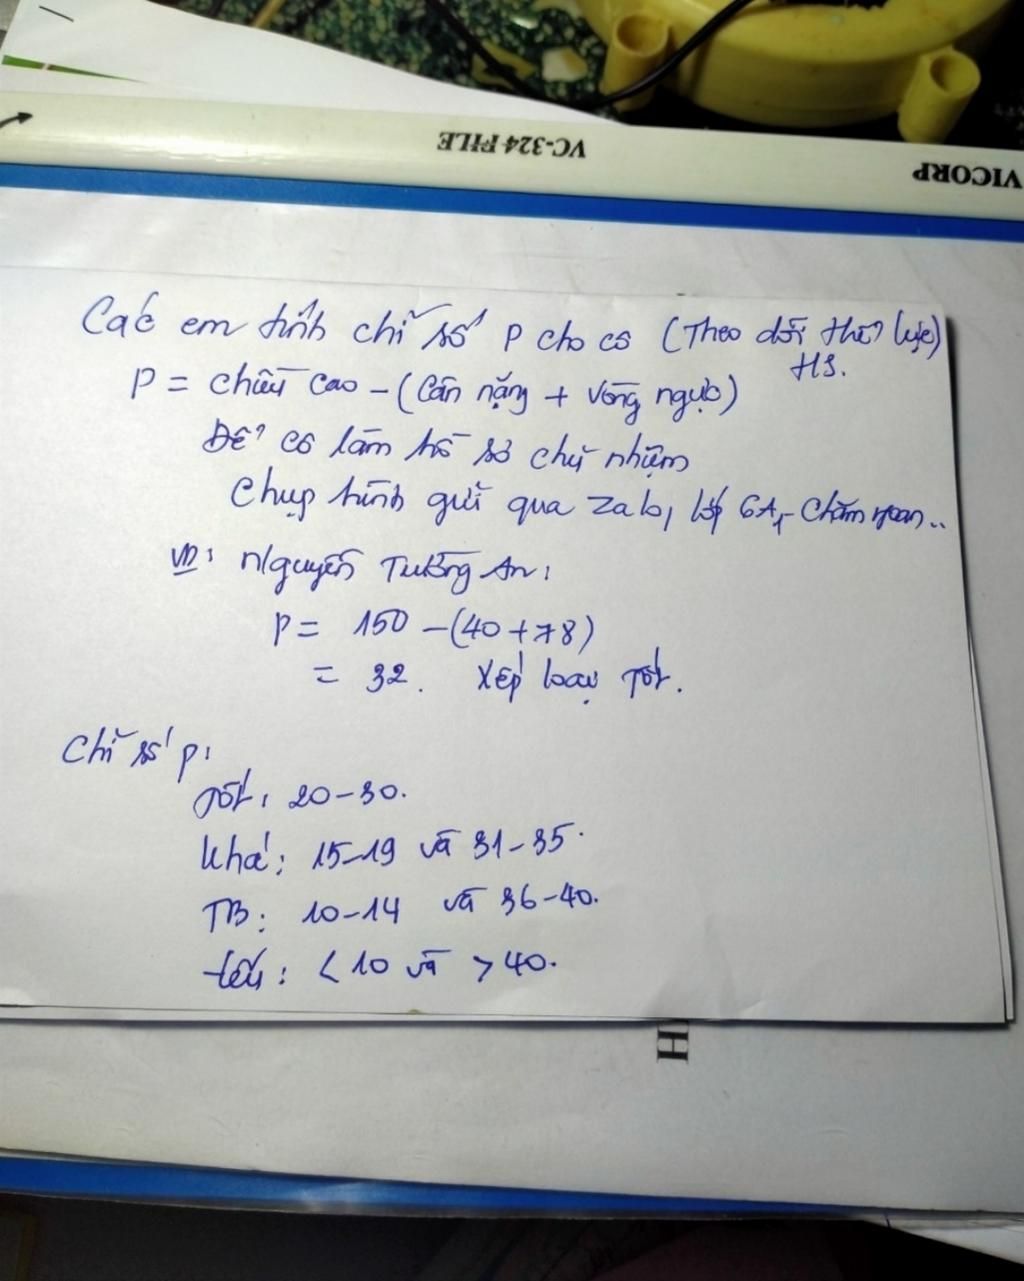 VC-324 FILE
VICORP
Các em tính chỉ số P cho cô (Theo dõi thể lực)
HS.
P = chiều cao - (Cân nặng + vòng ngực)
Để cô làm hồ sơ chủ nhiệm
Chụp hình gửi qua Zalo, lớp 6A1 - Chăm ngoan..
VD: Nguyễn Tường An:
P = 150 - (40 + 78)
= 32. Xếp loại Tốt.
Chỉ số p:
Tốt: 20-30.
Khá: 15-19 và 31-35.
TB: 10-14 và 36-40.
Yếu: < 10 và > 40.
H